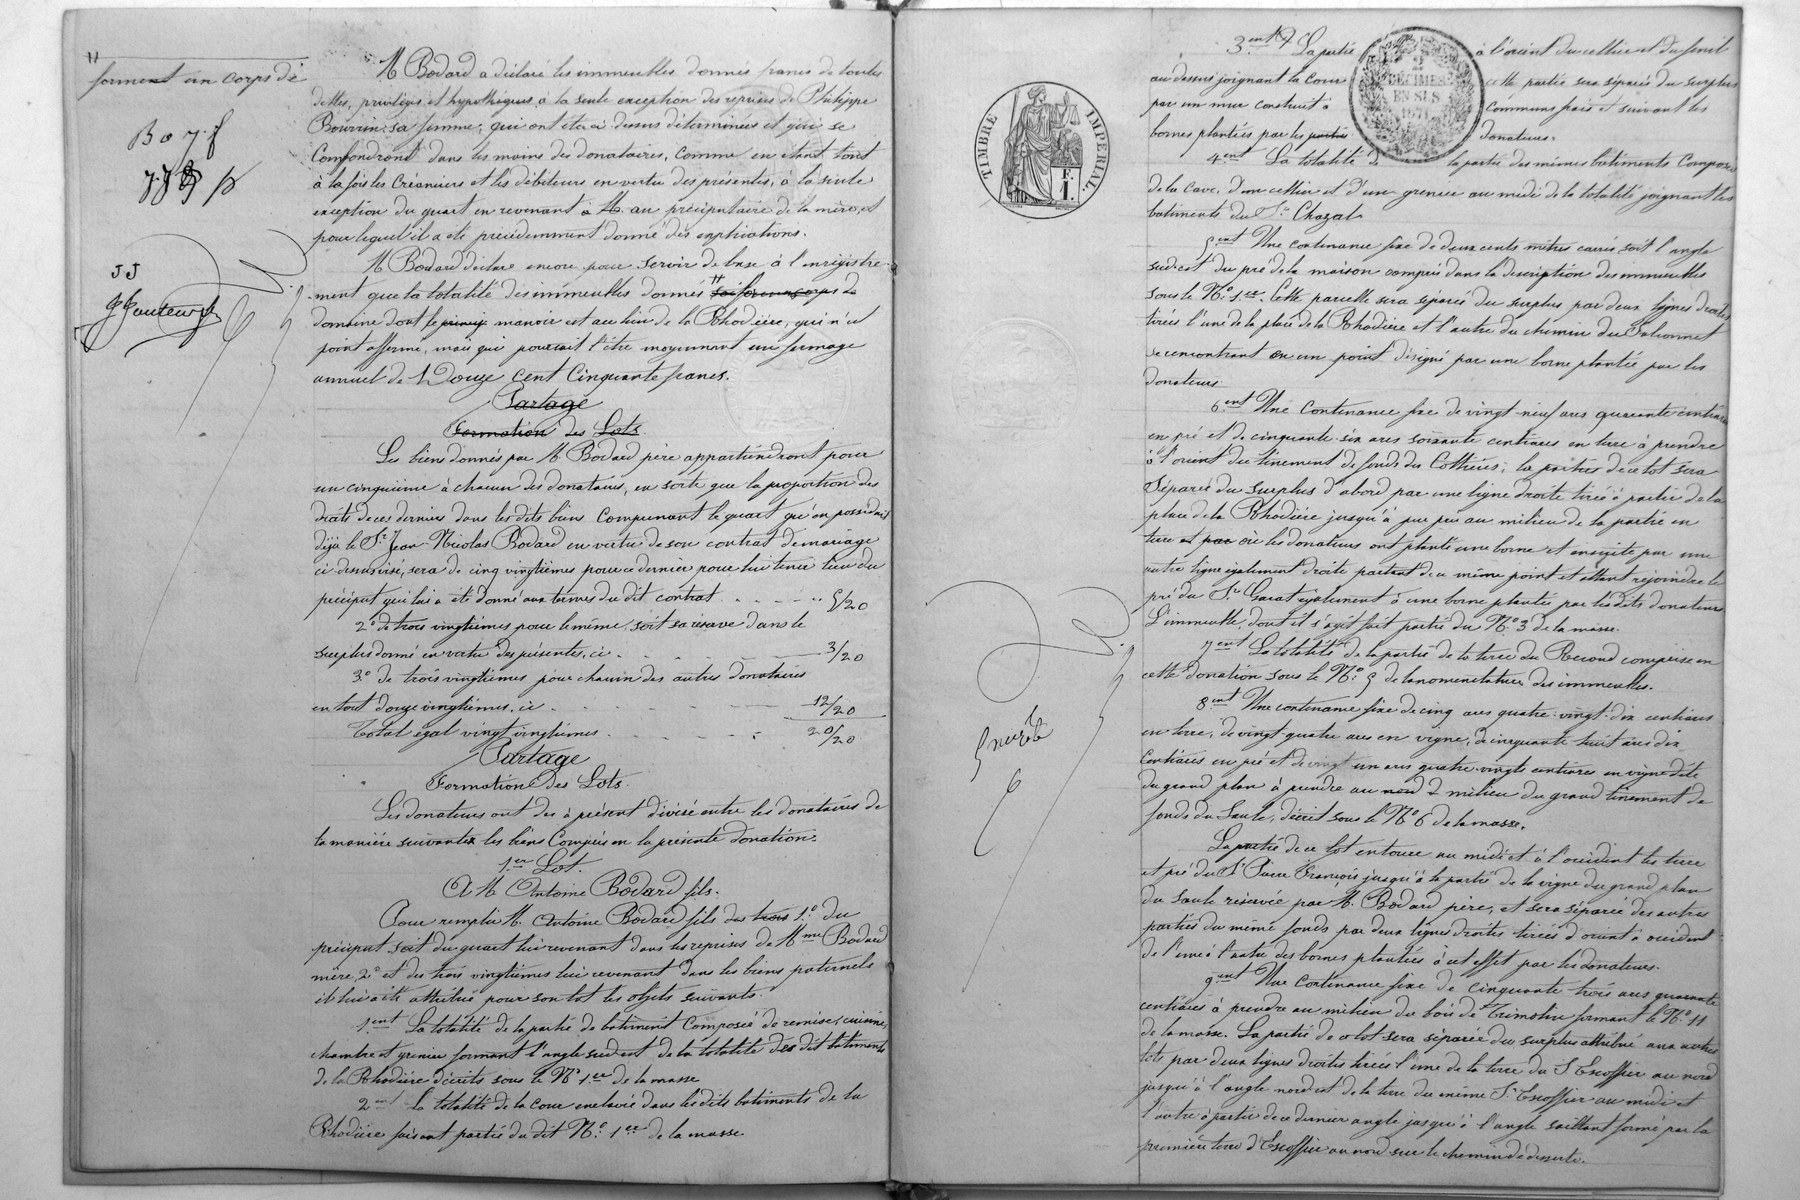 "
forment un corps de
Bo J. f
J J B p
J J
JFauteurge
M Bodard a déclaré les immeubles donnés francs de toutes
dettes, privilèges et hypothèques, à la seule exception des reprises de Philippe
Bouvrin, sa femme, qui ont été ci dessus déterminées et qui se
Confondront dans les mains des donataires, comme en étant tout
à la fois les Créanciers et les débiteurs en vertu des présentes, à la seule
exception du quart en revenant à M. au préciputaire de la mère, et
pour lequel il a été précédemment donné des explications.
M Bodard déclare encore pour servir de base à l'enregistre-
-ment que la totalité des immeubles donnés " corps de
domaine dont le manoir est au lieu de la Rhodière, qui n'est
point affermé, mais qui pourrait l'être moyennant un fermage
annuel de Douze Cent Cinquante francs.
Partage
Formation des Lots
Les biens donnés par M Bodard père appartiendront pour
un cinquième à chacun des donataires, en sorte que la proportion des
droits de ces derniers dans les dits biens Comprenant le quart qu'en possédait
déjà le Sr Jean-Nicolas Bodard en vertu de son contrat de mariage
ci dessus visé, sera de cinq vingtièmes pour ce dernier pour lui tenir lieu du
préciput qui lui a été donné aux termes du dit contrat . . . . 5/20
2° de trois vingtièmes pour le même, soit sa réserve dans le
surplus donné en vertu des présentes, ci . . . . 3/20
3° de trois vingtièmes pour chacun des autres donataires
en tout douze vingtièmes, ci . . . . 12/20
Total égal vingt vingtièmes . . . . 20/20
Partage
Formation des Lots.
Les donateurs ont dès à présent divisé entre les donataires de
la manière suivante les biens Compris en la présente donation.
1.er Lot.
A M Antoine Bodard fils.
Pour remplir M. Antoine Bodard fils des trois 1.° du
préciput soit du quart lui revenant dans les reprises de Mme Bodard
mère, 2° et des trois vingtièmes lui revenant dans les biens paternels
il lui a été attribué pour son lot les objets suivants.
1.ent La totalité de la partie de bâtiment Composée de remise, cuisine,
chambre et grenier formant l'angle sud est de la totalité des dits bâtiments
de la Rhodière décrits sous le N° 1.er de la masse
2.ent la totalité de la Cour enclavée dans les dits bâtiments de la
Rhodière faisant partie du dit N°. 1.er de la masse
TIMBRE IMPERIAL
F.
1.
2
DÉCIMES
EN SUS
1871
3.ent La partie à l'orient du cellier et du fenil
au dessus joignant la cour cette partie sera séparée du surplus
par un mur construit à Communs frais et suivant les
bornes plantées par les parties donateurs.
4.ent La totalité de la partie des mêmes bâtiments Composée
de la Cave, d'un cellier et d'un grenier au midi de la totalité joignant les
bâtiments du Sr Chazal.
5.ent Une contenance fixe de deux cents mètres carrés soit l'angle
sud est du pré de la maison compris dans la description des immeubles
sous le N° 1.er. Cette parcelle sera séparée du surplus par deux lignes droites
tirées l'une de la place de la Rhodière et l'autre du chemin du
se rencontrant en un point désigné par une borne plantée par les
donateurs
6.ent Une Contenance fixe de vingt-neuf ares quarante centiares
en pré et de cinquante six ares soixante centiares en terre à prendre
à l'orient du tènement de fonds des Cothéres; la partie de ce lot sera
Séparée du surplus d'abord par une ligne droite tirée à partir de la
place de la Rhodière jusqu'à peu près au milieu de la partie en
terre et par où les donateurs ont planté une borne et ensuite par une
autre ligne également droite partant du même point et allant rejoindre le
pré du Sr Garat également à une borne plantée par les dits donateurs
L'immeuble, dont il s'agit fait partie du N° 3 de la masse.
7.ent La totalité de la partie de la terre du Recond comprise en
cette donation sous le N° 5 de la nomenclature des immeubles.
8.ent Une contenance fixe de cinq ares quatre-vingt-dix centiares
en terre, de vingt-quatre ares en vigne, de cinquante huit ares dix
Centiares en pré et de vingt un ares quatre-vingts centiares en vigne dite
du grand plan à prendre au nord & milieu du grand tènement de
fonds du Saule, décrit sous le N° 6 de la masse.
La partie de ce lot entoure au midi et à l'occident les terre
et pré du Sr Pierre François jusqu'à la partie de la vigne du grand plan
du Saule réservée par M. Bodard père, et sera séparée des autres
parties du même fonds par deux lignes droites tirées d'orient à occident
de l'une à l'autre des bornes plantées à cet effet par les donateurs.
9.ent Une Contenance fixe de Cinquante trois ares quarante
centiares à prendre au milieu du bois de Trimolin formant le N° 11
de la masse. La partie de ce lot sera séparée du surplus attribué aux autres
lots par deux lignes droites tirées l'une de la terre du Sr Escoffier au nord
jusqu'à l'angle nord est de la terre du même Sr Escoffier au midi et
l'autre à partir de ce dernier angle jusqu'à l'angle saillant formé par la
première terre d'Escoffier au nord sur le chemin de desserte.